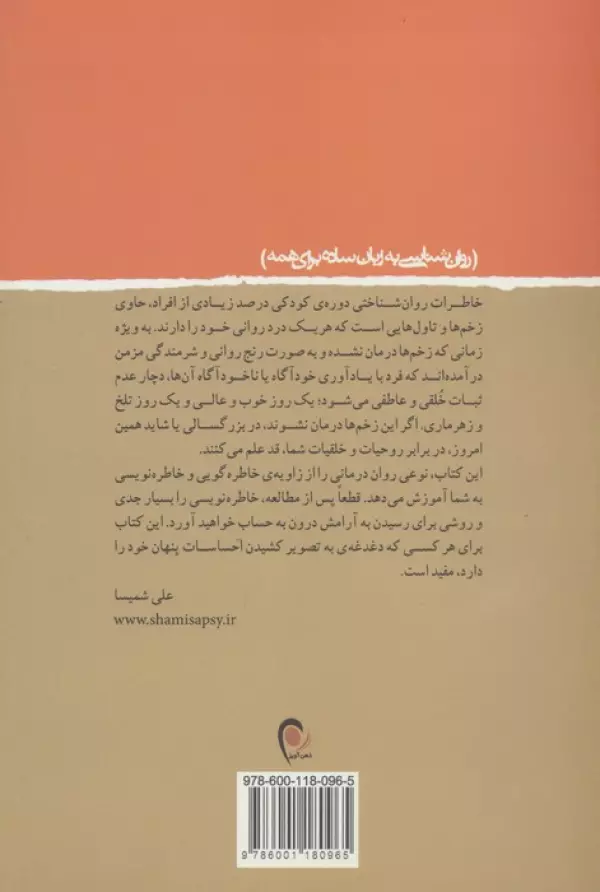 (روان‌شناسی به زبان ساده برای همه)
خاطرات روان‌شناختی دوره‌ی کودکی درصد زیادی از افراد، حاوی
زخم‌ها و تاول‌هایی است که هر یک درد روانی خود را دارند. به ویژه
زمانی که زخم‌ها درمان نشده و به صورت رنج روانی و شرمندگی مزمن
درآمده‌اند که فرد با یادآوری خودآگاه یا ناخودآگاه آن‌ها، دچار عدم
ثبات خُلقی و عاطفی می‌شود؛ یک روز خوب و عالی و یک روز تلخ
و زهرماری، اگر این زخم‌ها درمان نشوند، در بزرگسالی یا شاید همین
امروز، در برابر روحیات و خلقیات شما، قد علم می‌کنند.
این کتاب، نوعی روان درمانی را از زاویه‌ی خاطره‌گویی و خاطره‌نویسی
به شما آموزش می‌دهد. قطعاً پس از مطالعه، خاطره‌نویسی را بسیار جدی
و روشی برای رسیدن به آرامش درون به حساب خواهید آورد. این کتاب
برای هر کسی که دغدغه‌ی به تصویر کشیدن احساسات پنهان خود را
دارد، مفید است.
علی شمیسا
www.shamisapsy.ir
ذهن آویز
978-600-118-096-5
9 786001 180965